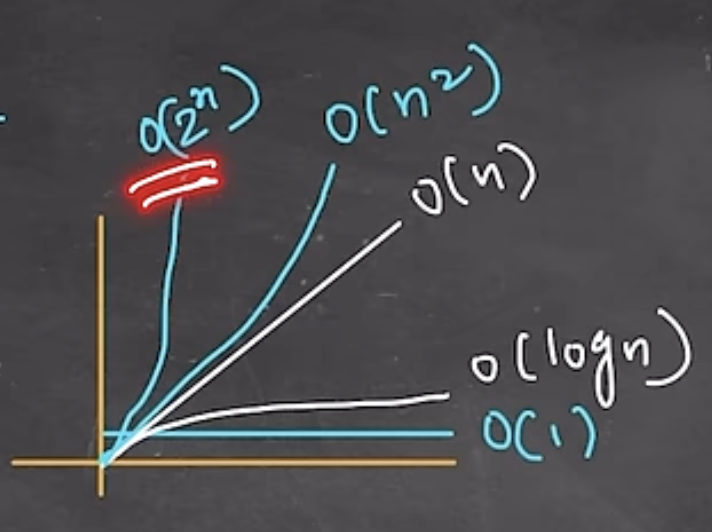 O(2ⁿ)
O(n²)
O(n)
O(log n)
O(1)